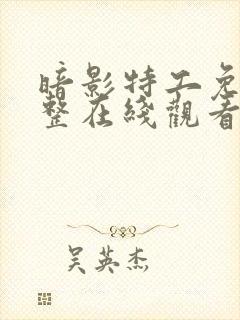 暗影特工免
整在线觀看
吴英杰